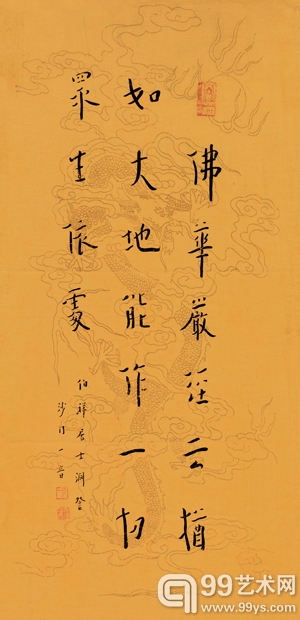 佛華嚴經云猶
如大地能作一切
眾生依處
伯祥居士
沙門一音
99艺术网
www.99ys.com